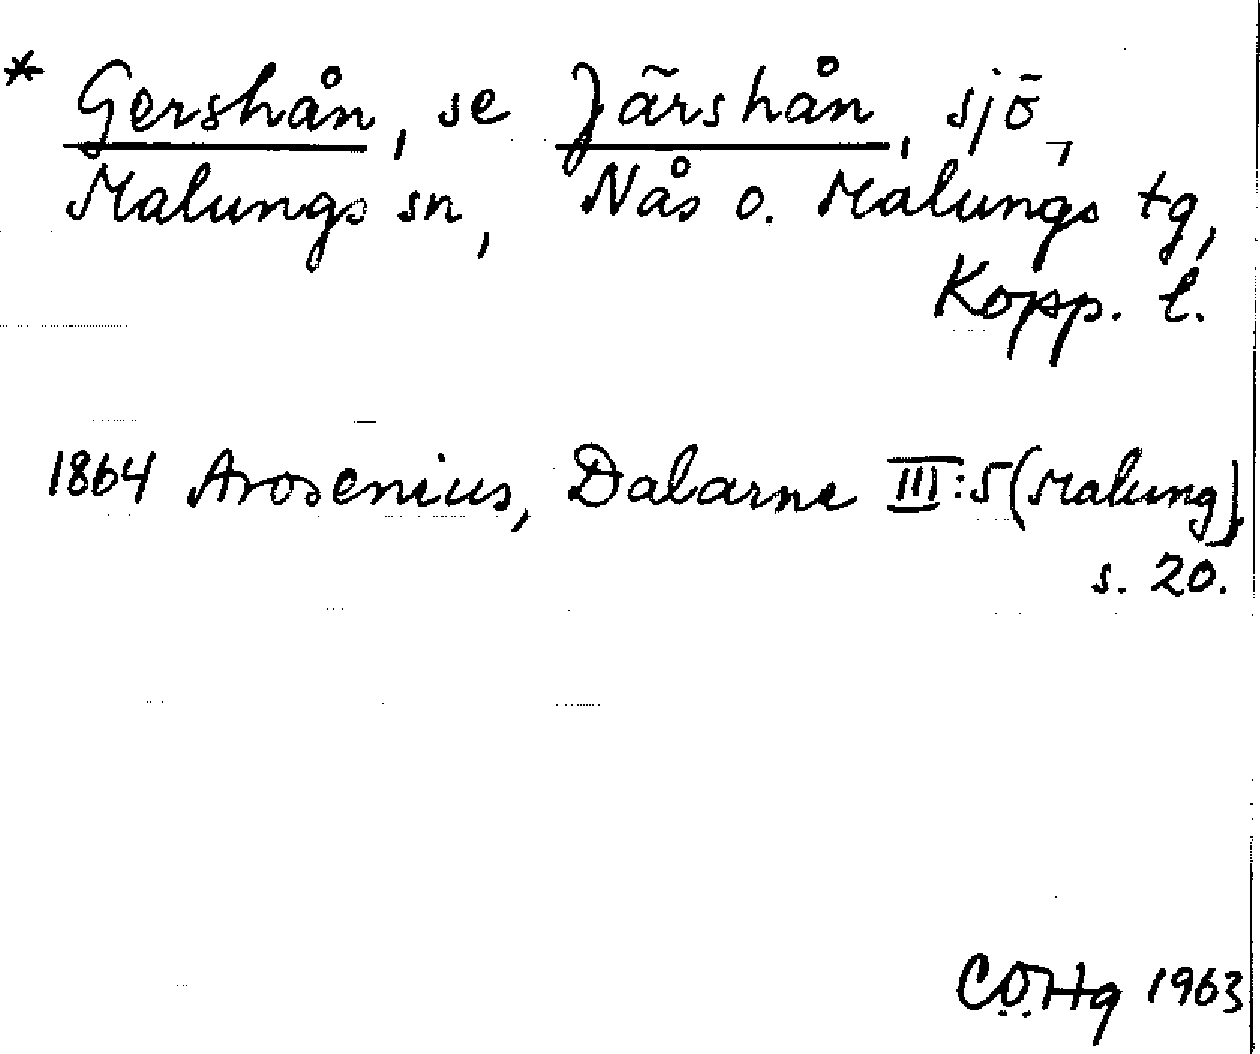 * Gershån, se Järshån, sjö,
Malungs sn, Nås o. Malungs tg,
Kopp. l.
1864 Arosenius, Dalarne III:5 (Malung)
s. 20.
C.O.Hg 1963